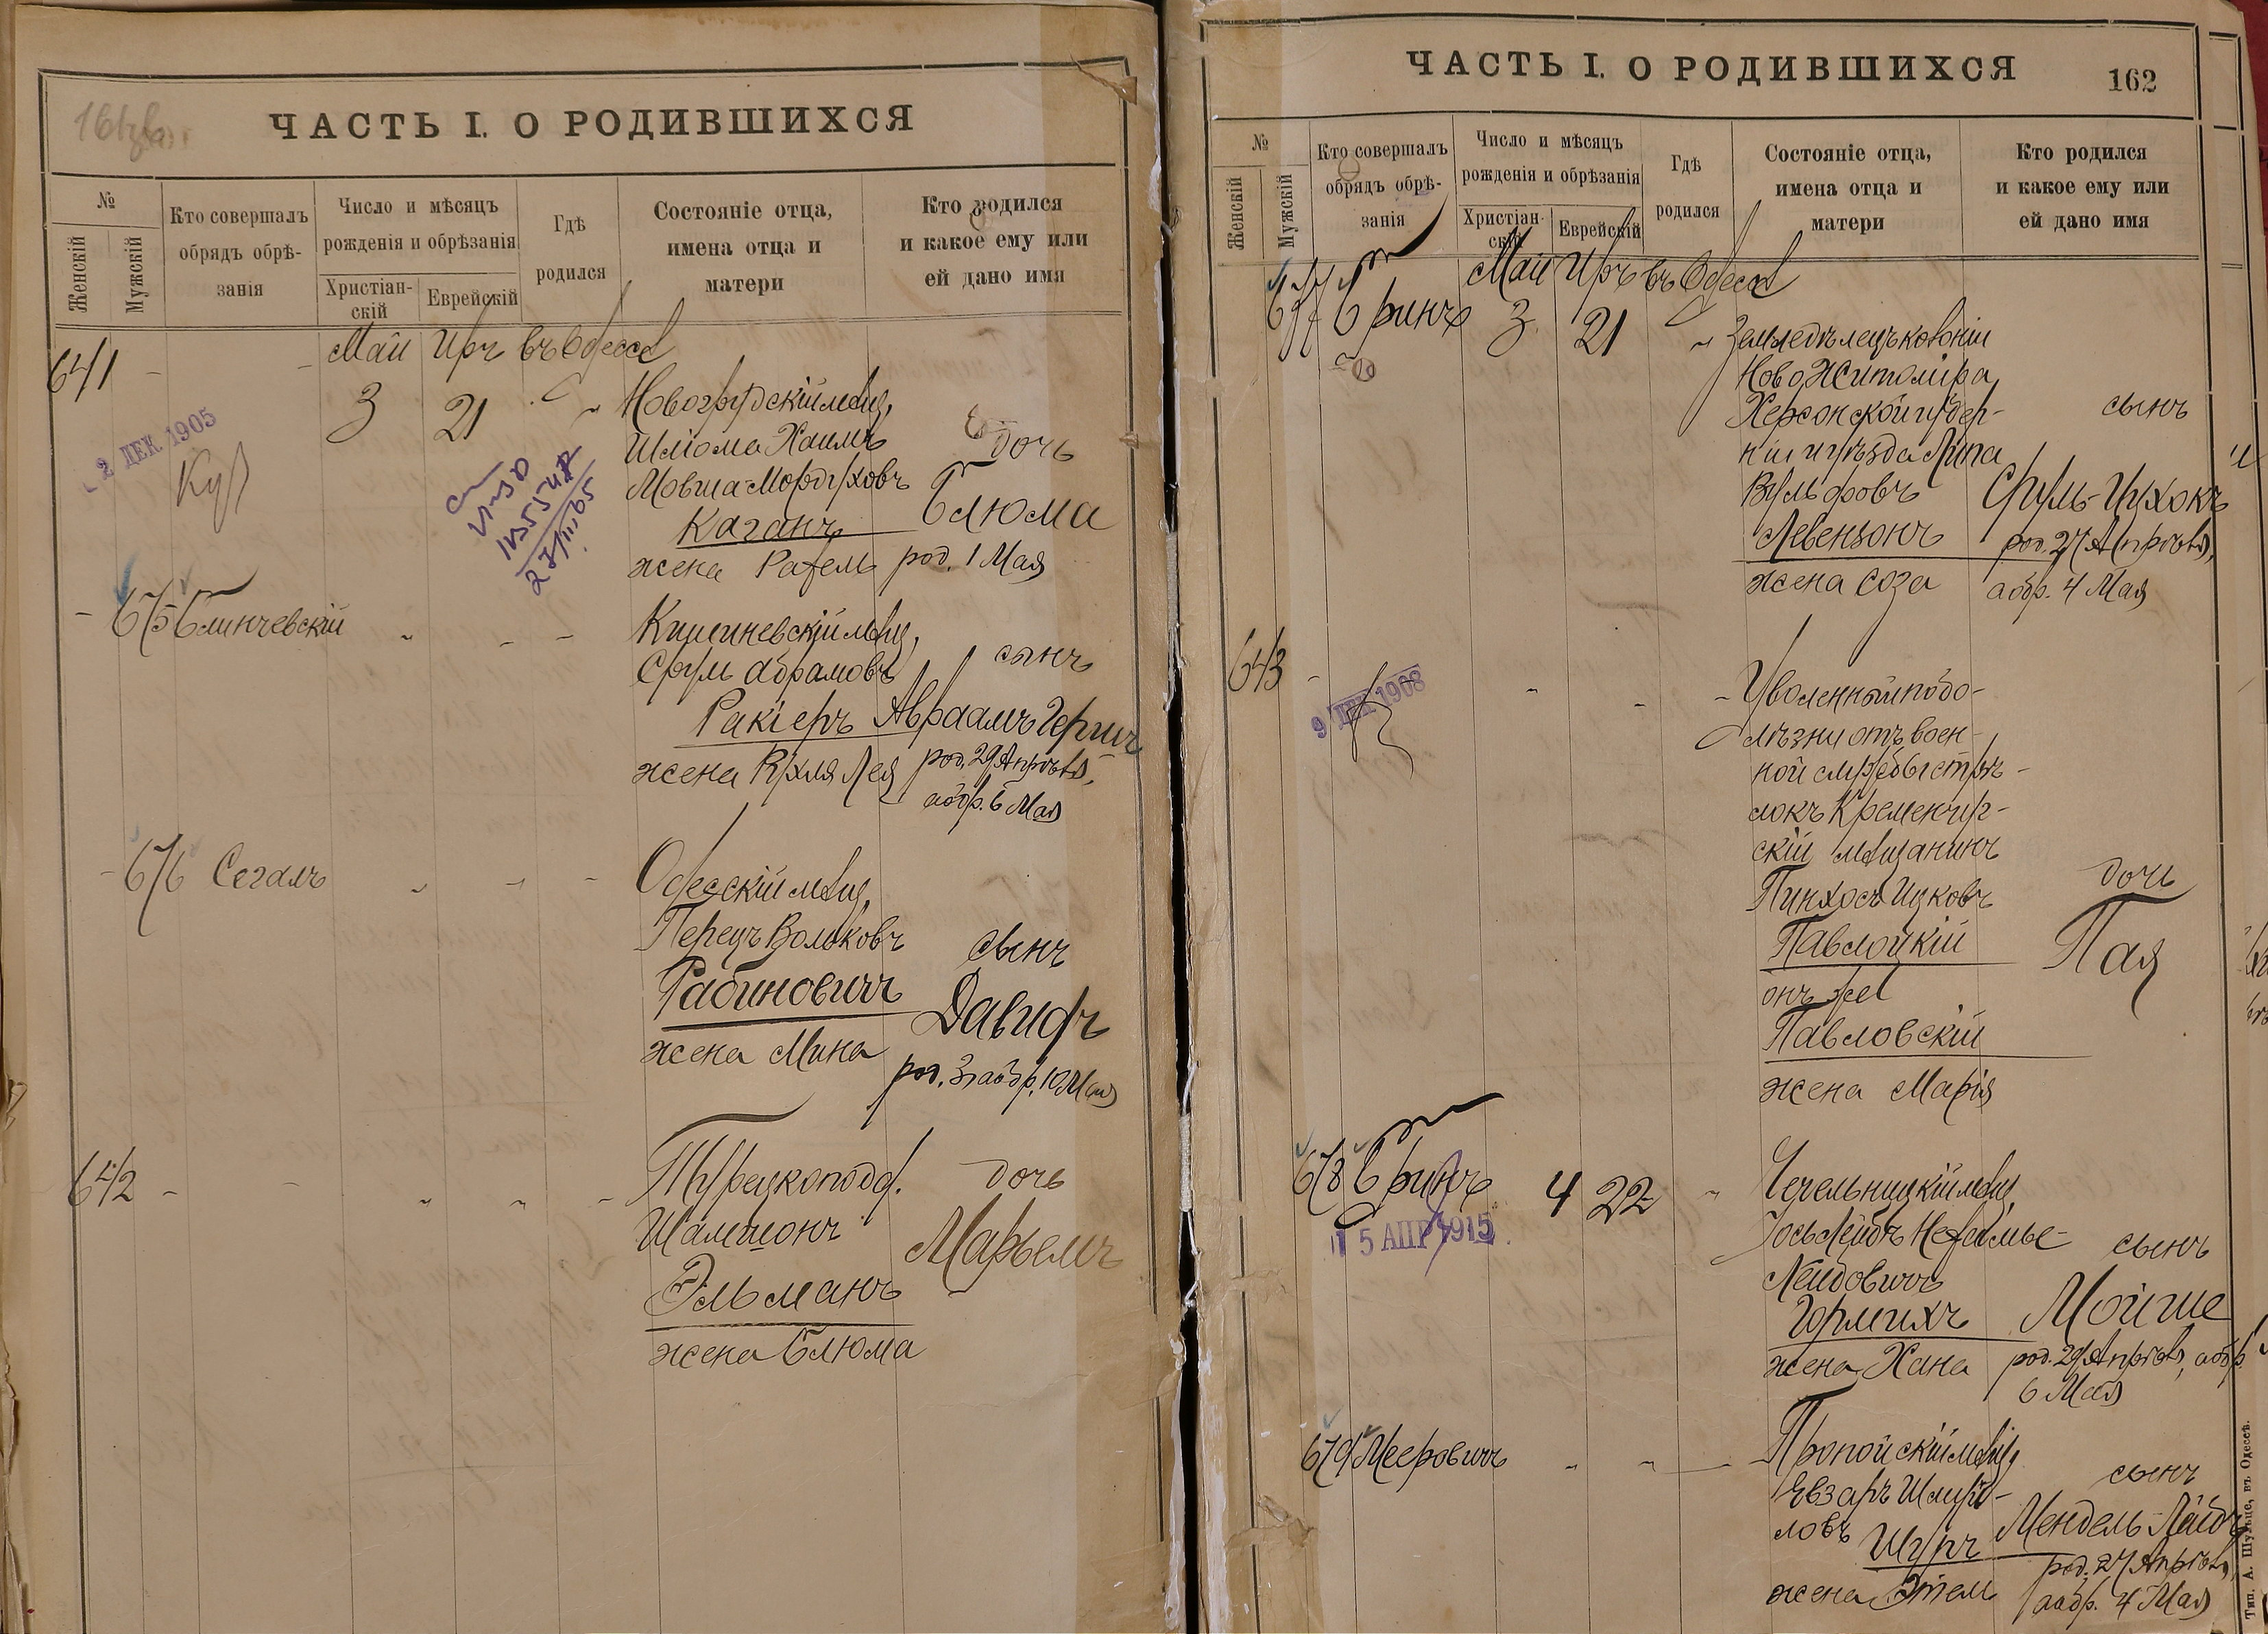 161
ЧАСТЬ I. О РОДИВШИХСЯ
№
Женскій
Мужскій
Кто совершалъ
обрядъ обрѣ-
занія
Число и мѣсяцъ
рожденія и обрѣзанія
Христіан-
скій
Еврейскій
Гдѣ
родился
Состояніе отца,
имена отца и
матери
Кто родился
и какое ему или
ей дано имя
Май Иръ въ Одессѣ
641 - - 3 21 "
Новогрудскій мѣщ.
Шліома Хаимъ
Мовша Мордуховъ
Каганъ
жена Рахель
дочь
Блюма
род. 1 Мая
2 ДЕК. 1905
- 675 Блинчевскій " - -
Кишиневскій мѣщ.
Сруль Абрамовъ
Ракіеръ
жена Рухля Лея
сынъ
Авраамъ Герш
род. 29 Апрѣля,
а обр. 6 Мая
- 676 Сегалъ " - -
Одесскій мѣщ.
Перецъ Вольковъ
Рабиновичъ
жена Мина
сынъ
Давидъ
род. 3, а обр. 10 Мая
642 - - " " -
Турецкоподд.
Шамшонъ
Эльманъ
жена Блюма
дочь
Марьемъ
ЧАСТЬ I. О РОДИВШИХСЯ
162
№
Женскій
Мужскій
Кто совершалъ
обрядъ обрѣ-
занія
Число и мѣсяцъ
рожденія и обрѣзанія
Христіан-
скій
Еврейскій
Гдѣ
родился
Состояніе отца,
имена отца и
матери
Кто родился
и какое ему или
ей дано имя
Май Иръ въ Одессѣ
677 Гринъ 3 21 "
Земледѣлецъ колоніи
Ново Житоміра
Херсонской губер-
ніи и уѣзда Липа
Вульфовъ
Левензонъ
жена Соза
сынъ
Сруль-Ицхокъ
род. 27 Апрѣля,
а обр. 4 Мая
643 - " - -
9 ДЕК 1908
Уволенный по бо-
лѣзни отъ воен-
ной службы стрѣ-
локъ Кременчуг-
скій мѣщанинъ
Пинхосъ Ицковъ
Павлоцкій
онъ же
Павловскій
жена Марія
дочь
Пая
678 Гринъ 4 22 "
15 АПР 1915
Чечельницкій мѣщ.
Іось Лейбъ Нехемье-
Лейбовичъ
Гормихъ
жена Хана
сынъ
Мойше
род. 29 Апрѣля, а обр.
6 Мая
679 Мееровичъ " " -
Пропойскій мѣщ.
Евзаръ Шмуй-
ловъ
Шуръ
жена Этель
сынъ
Мендель-Лейбъ
род. 27 Апрѣля,
а обр. 4 Мая
Тип. А. Шульце, въ Одессѣ.